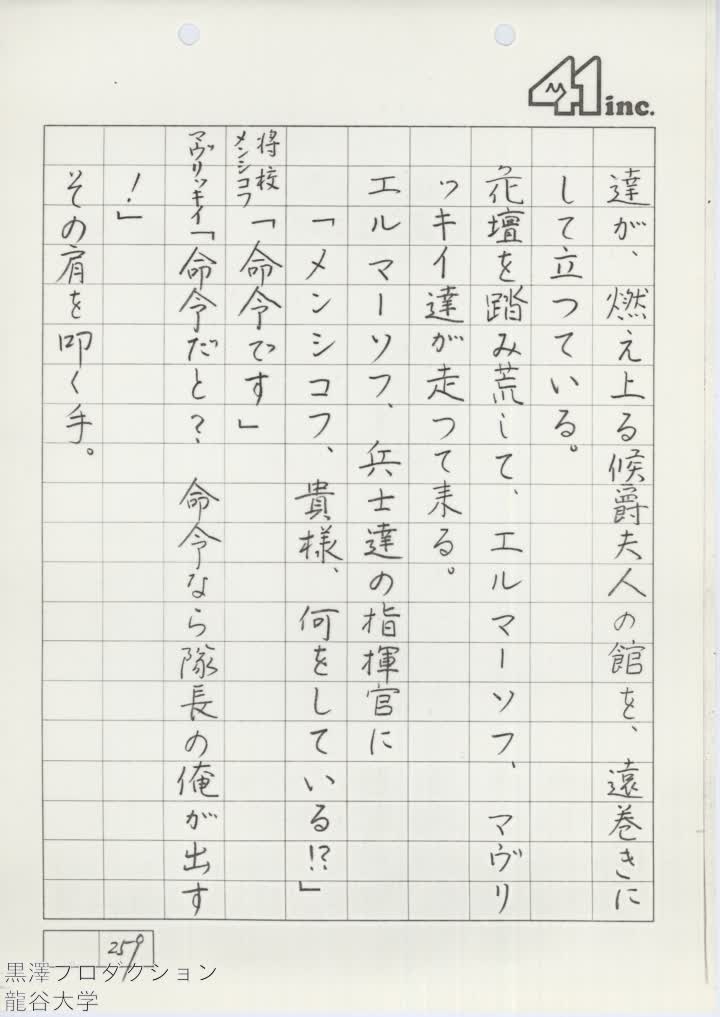 41 inc.
達が、燃え上る候爵夫人の館を、遠巻きに
して立つている。
花壇を踏み荒して、エルマーソフ、マヴリ
ツキイ達が走つて来る。
エルマーソフ、兵士達の指揮官に
「メンシコフ、貴様、何をしている!?」
将校メンシコフ「命令です」
マヴリツキイ「命令だと？ 命令なら隊長の俺が出す
！」
その肩を叩く手。
259
黒澤プロダクション
龍谷大学